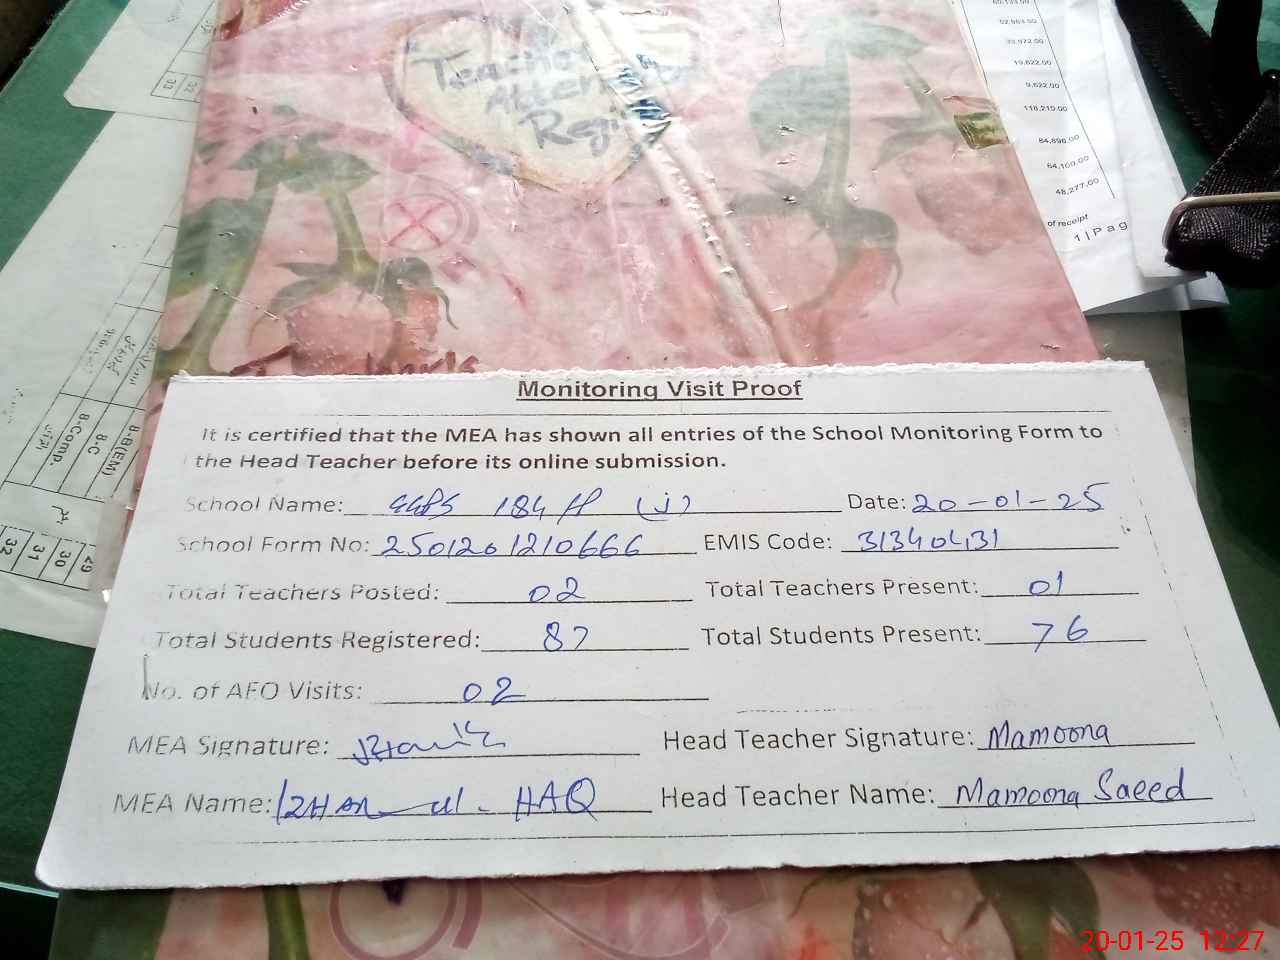 60,133.00
52,963.00
33,972.00
19,622.00
9,622.00
118,219.00
84,896.00
64,100.00
48,277.00
of receipt
1 | Pag
33
Teacher
Atten
Regi
8-B(EM)
8-C
8-Comp.
29
30
31
32
Monitoring Visit Proof
It is certified that the MEA has shown all entries of the School Monitoring Form to
the Head Teacher before its online submission.
School Name: GGPS 184 P (J) Date: 20-01-25
School Form No: 2501201210666 EMIS Code: 31340431
Total Teachers Posted: 02 Total Teachers Present: 01
Total Students Registered: 87 Total Students Present: 76
No. of AEO Visits: 02
MEA Signature: Head Teacher Signature: Mamoona
MEA Name: ul-HAQ Head Teacher Name: Mamoona Saeed
20-01-25 12:27